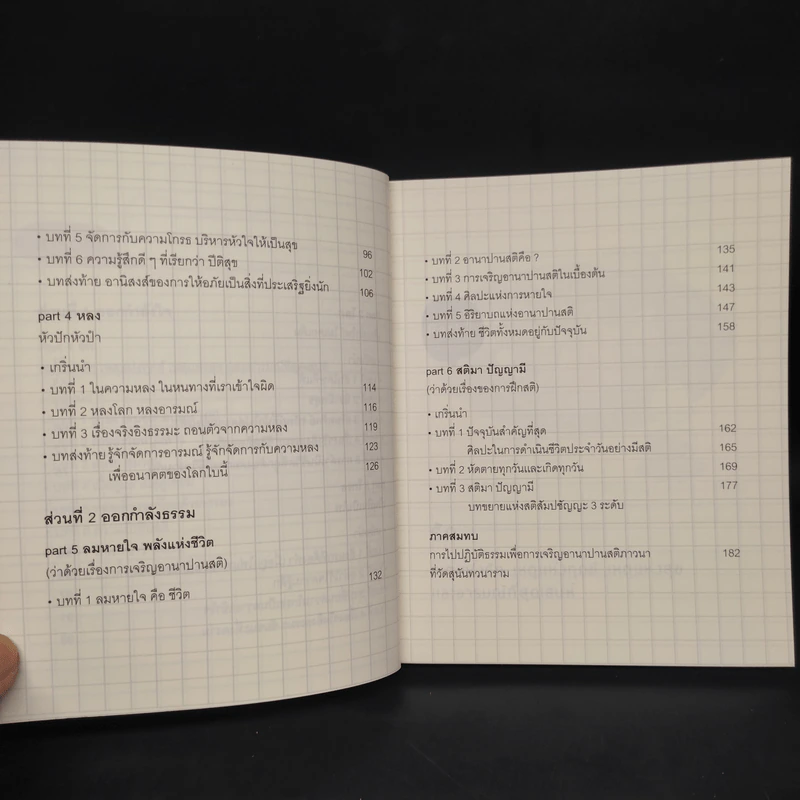 • บทที่ 5 จัดการกับความโกรธ บริหารหัวใจให้เป็นสุข 96
• บทที่ 6 ความรู้สึกดี ๆ ที่เรียกว่า ปีติสุข 102
• บทส่งท้าย อานิสงส์ของการให้อภัยเป็นสิ่งที่ประเสริฐยิ่งนัก 106
part 4 หลง
หัวปักหัวปำ
• เกริ่นนำ
• บทที่ 1 ในความหลง ในหนทางที่เราเข้าใจผิด 114
• บทที่ 2 หลงโลก หลงอารมณ์ 116
• บทที่ 3 เรื่องจริงอิงธรรมะ ถอนตัวจากความหลง 119
• บทส่งท้าย รู้จักจัดการอารมณ์ รู้จักจัดการกับความหลง 123
เพื่ออนาคตของโลกใบนี้ 126
ส่วนที่ 2 ออกกำลังธรรม
part 5 ลมหายใจ พลังแห่งชีวิต
(ว่าด้วยเรื่องการเจริญอานาปานสติ)
• บทที่ 1 ลมหายใจ คือ ชีวิต 132
• บทที่ 2 อานาปานสติคือ ? 135
• บทที่ 3 การเจริญอานาปานสติในเบื้องต้น 141
• บทที่ 4 ศิลปะแห่งการหายใจ 143
• บทที่ 5 อิริยาบถแห่งอานาปานสติ 147
• บทส่งท้าย ชีวิตทั้งหมดอยู่กับปัจจุบัน 158
part 6 สติมา ปัญญามี
(ว่าด้วยเรื่องของการฝึกสติ)
• เกริ่นนำ
• บทที่ 1 ปัจจุบันสำคัญที่สุด 162
ศิลปะในการดำเนินชีวิตประจำวันอย่างมีสติ 165
• บทที่ 2 หัดตายทุกวันและเกิดทุกวัน 169
• บทที่ 3 สติมา ปัญญามี 177
บทขยายแห่งสติสัมปชัญญะ 3 ระดับ
ภาคสมทบ
การไปปฏิบัติธรรมเพื่อการเจริญอานาปานสติภาวนา 182
ที่วัดสุนันทวนาราม